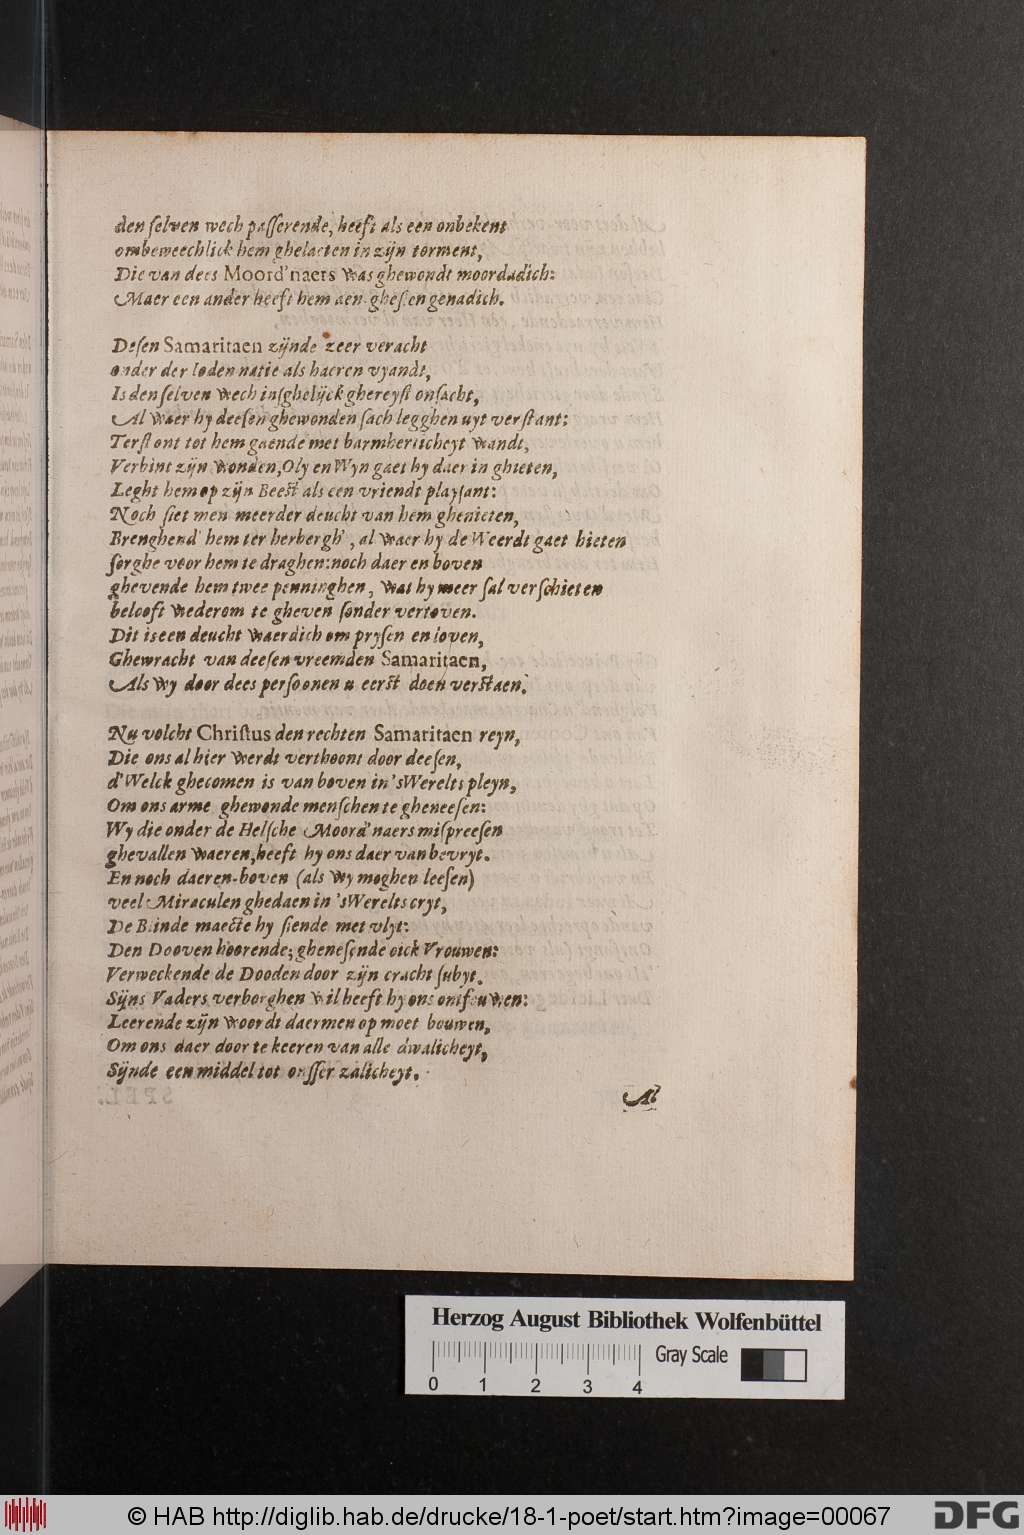 den ſelven wech paſſerende, heeft als een onbekent
ombeweechlick hem ghelaeten in zijn torment,
Die van dees Moord'naers was ghewondt moordadich:
Maer een ander heeft hem aen-gheſien genadich.

Deſen Samaritaen zijnde zeer veracht
onder der Ioden natie als haeren vyandt,
Is den ſelven wech inſghelijck ghereyſt onſacht,
Al waer hy deeſen ghewonden ſach legghen uyt verſtant:
Terſtont tot hem gaende met barmherticheyt wandt,
Verbint zijn wonden, Oly en Wyn gaet hy daer in ghieten,
Leght hem op zijn Beeſt als een vriendt playſant:
Noch ſiet men meerder deucht van hem ghenieten,
Brenghend' hem ter herbergh', al waer hy de Weerdt gaet bieten
ſorghe voor hem te draghen: noch daer en boven
ghevende hem twee penninghen, wat hy meer ſal verſchieten
belooft wederom te gheven ſonder vertoven.
Dit is een deucht waerdich om pryſen en loven,
Ghewracht van deeſen vreemden Samaritaen,
Als wy door dees perſoonen u eerſt doen verſtaen.

Nu volcht Chriſtus den rechten Samaritaen reyn,
Die ons al hier werdt verthoont door deeſen,
d'Welck ghecomen is van boven in 'sWerelts pleyn,
Om ons arme ghewonde menſchen te gheneeſen:
Wy die onder de Helſche Moord'naers miſpreeſen
ghevallen waeren, heeft hy ons daer van bevryt.
En noch daeren-boven (als wy moghen leeſen)
veel Miraculen ghedaen in 'sWerelts cryt,
De Blinde maeckte hy ſiende met vlyt:
Den Dooven hoorende; gheneſende oick Vrouwen:
Verweckende de Dooden door zijn cracht ſubyt.
Sijns Vaders verborghen wil heeft hy ons ontfouwen:
Leerende zijn woordt daermen op moet bouwen,
Om ons daer door te keeren van alle dwalicheyt,
Sijnde een middel tot onſſer zalicheyt.
Al
Herzog August Bibliothek Wolfenbüttel
Gray Scale
0 1 2 3 4
© HAB http://diglib.hab.de/drucke/18-1-poet/start.htm?image=00067
DFG